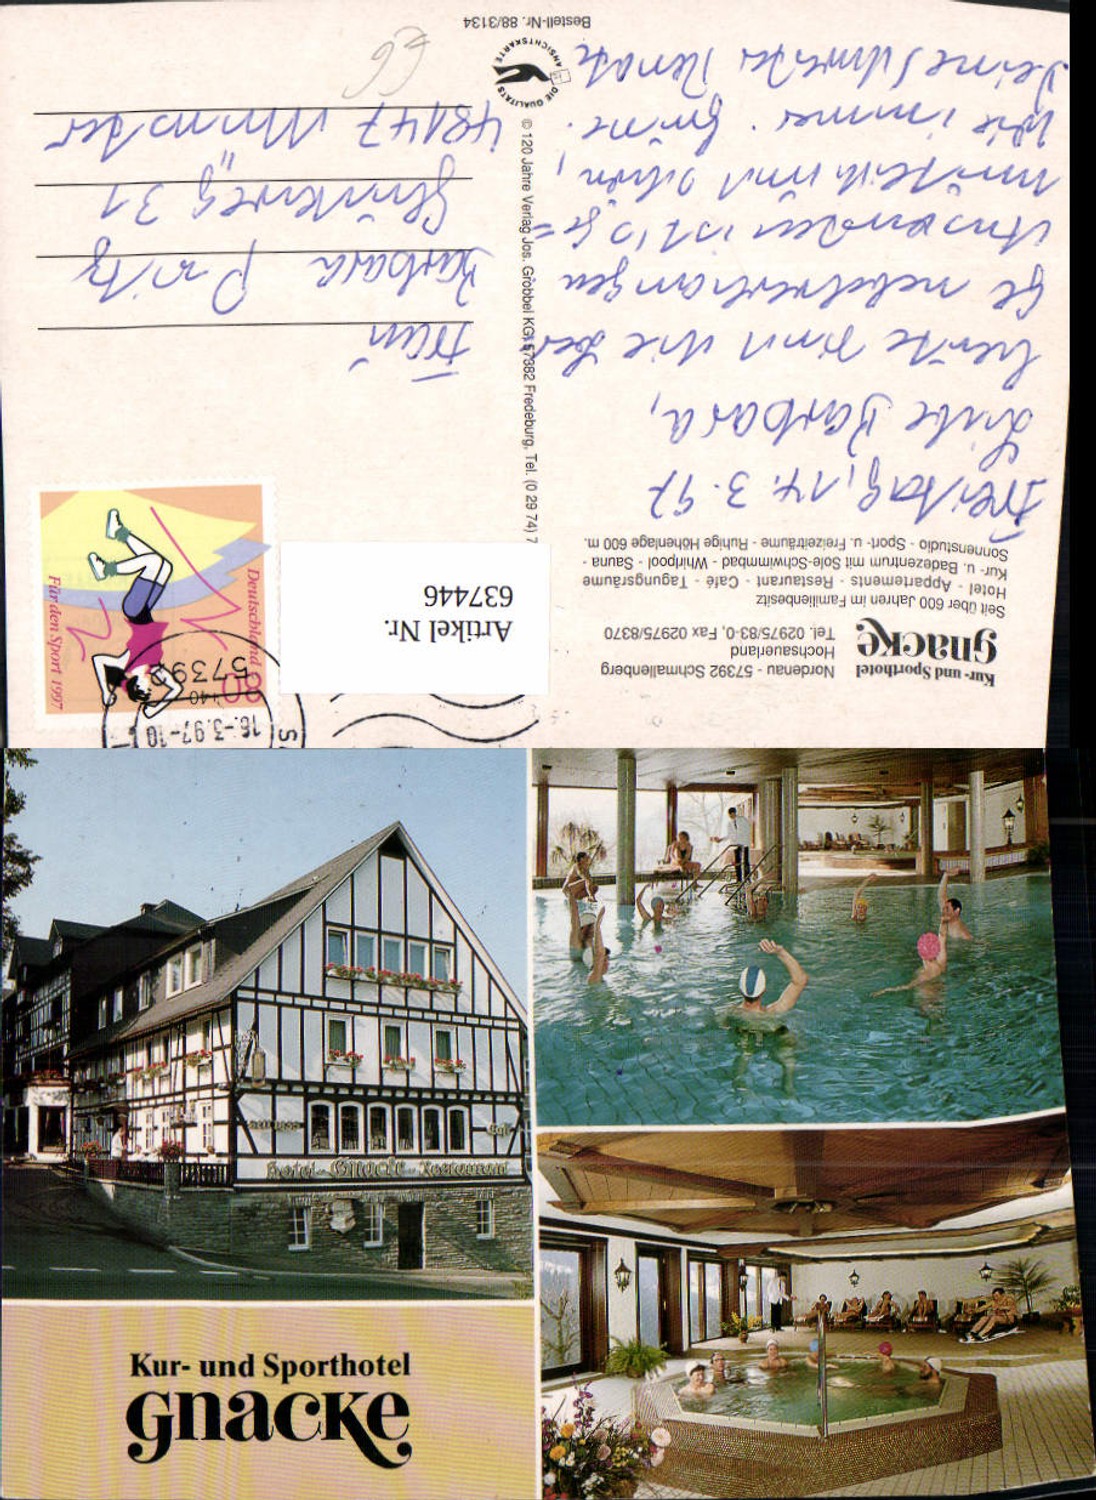 Kur- und Sporthotel
gnacke
Nordenau - 57392 Schmallenberg
Hochsauerland
Tel. 02975/83-0, Fax 02975/8370
Seit über 600 Jahren im Familienbesitz
Hotel - Appartements - Restaurant - Café - Tagungsräume
Kur- u. Badezentrum mit Sole-Schwimmbad - Whirlpool - Sauna -
Sonnenstudio - Sport- u. Freizeiträume - Ruhige Höhenlage 600 m.
Freitag, 14.3.97
Liebe Barbara,
heute sind wie der
Das Wandern ist so ge=
mütlich und schön,
wie immer.
Deine Schwester Renate
Artikel Nr.
637446
Deutschland
80
+40
Für den Sport 1997
16.-3.97-10
57392
Frau
Barbara
48147 Münster
66
© 120 Jahre Verlag Jos. Grobbel KG, 57382 Fredeburg, Tel. (0 29 74) 7
DIE QUALITÄTS ANSICHTSKARTE
Bestell-Nr. 88/3134
Hotel - Gnacke - Restaurant
Café
Kur- und Sporthotel
gnacke